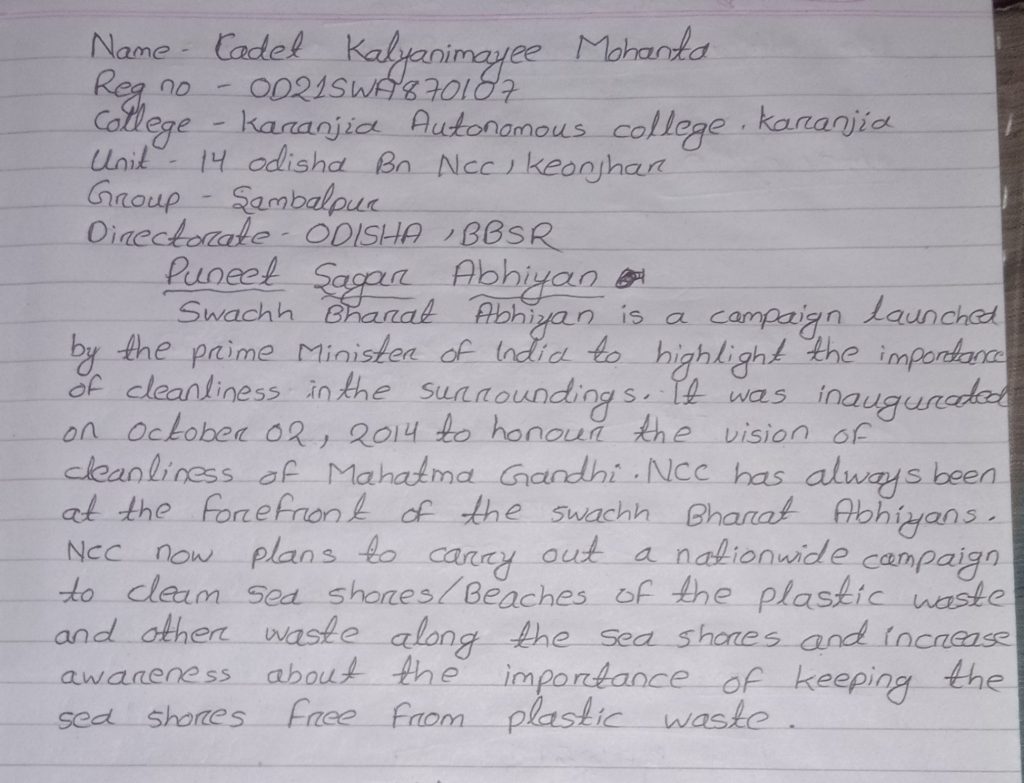 Name - Cadet Kalyanimayee Mohanta
Reg no - OD21SWA870107
College - Karanjia Autonomous college. karanjia
Unit - 14 odisha Bn Ncc, keonjhar
Group - Sambalpur
Directorate - ODISHA, BBSR
Puneet Sagar Abhiyan
Swachh Bharat Abhiyan is a campaign launched
by the prime Minister of India to highlight the importance
of cleanliness in the surroundings. It was inaugurated
on October 02, 2014 to honour the vision of
cleanliness of Mahatma Gandhi. NCC has always been
at the forefront of the swachh Bharat Abhiyans.
NCC now plans to carry out a nationwide campaign
to cleam sea shores/Beaches of the plastic waste
and other waste along the sea shores and increase
awareness about the importance of keeping the
sea shores free from plastic waste.